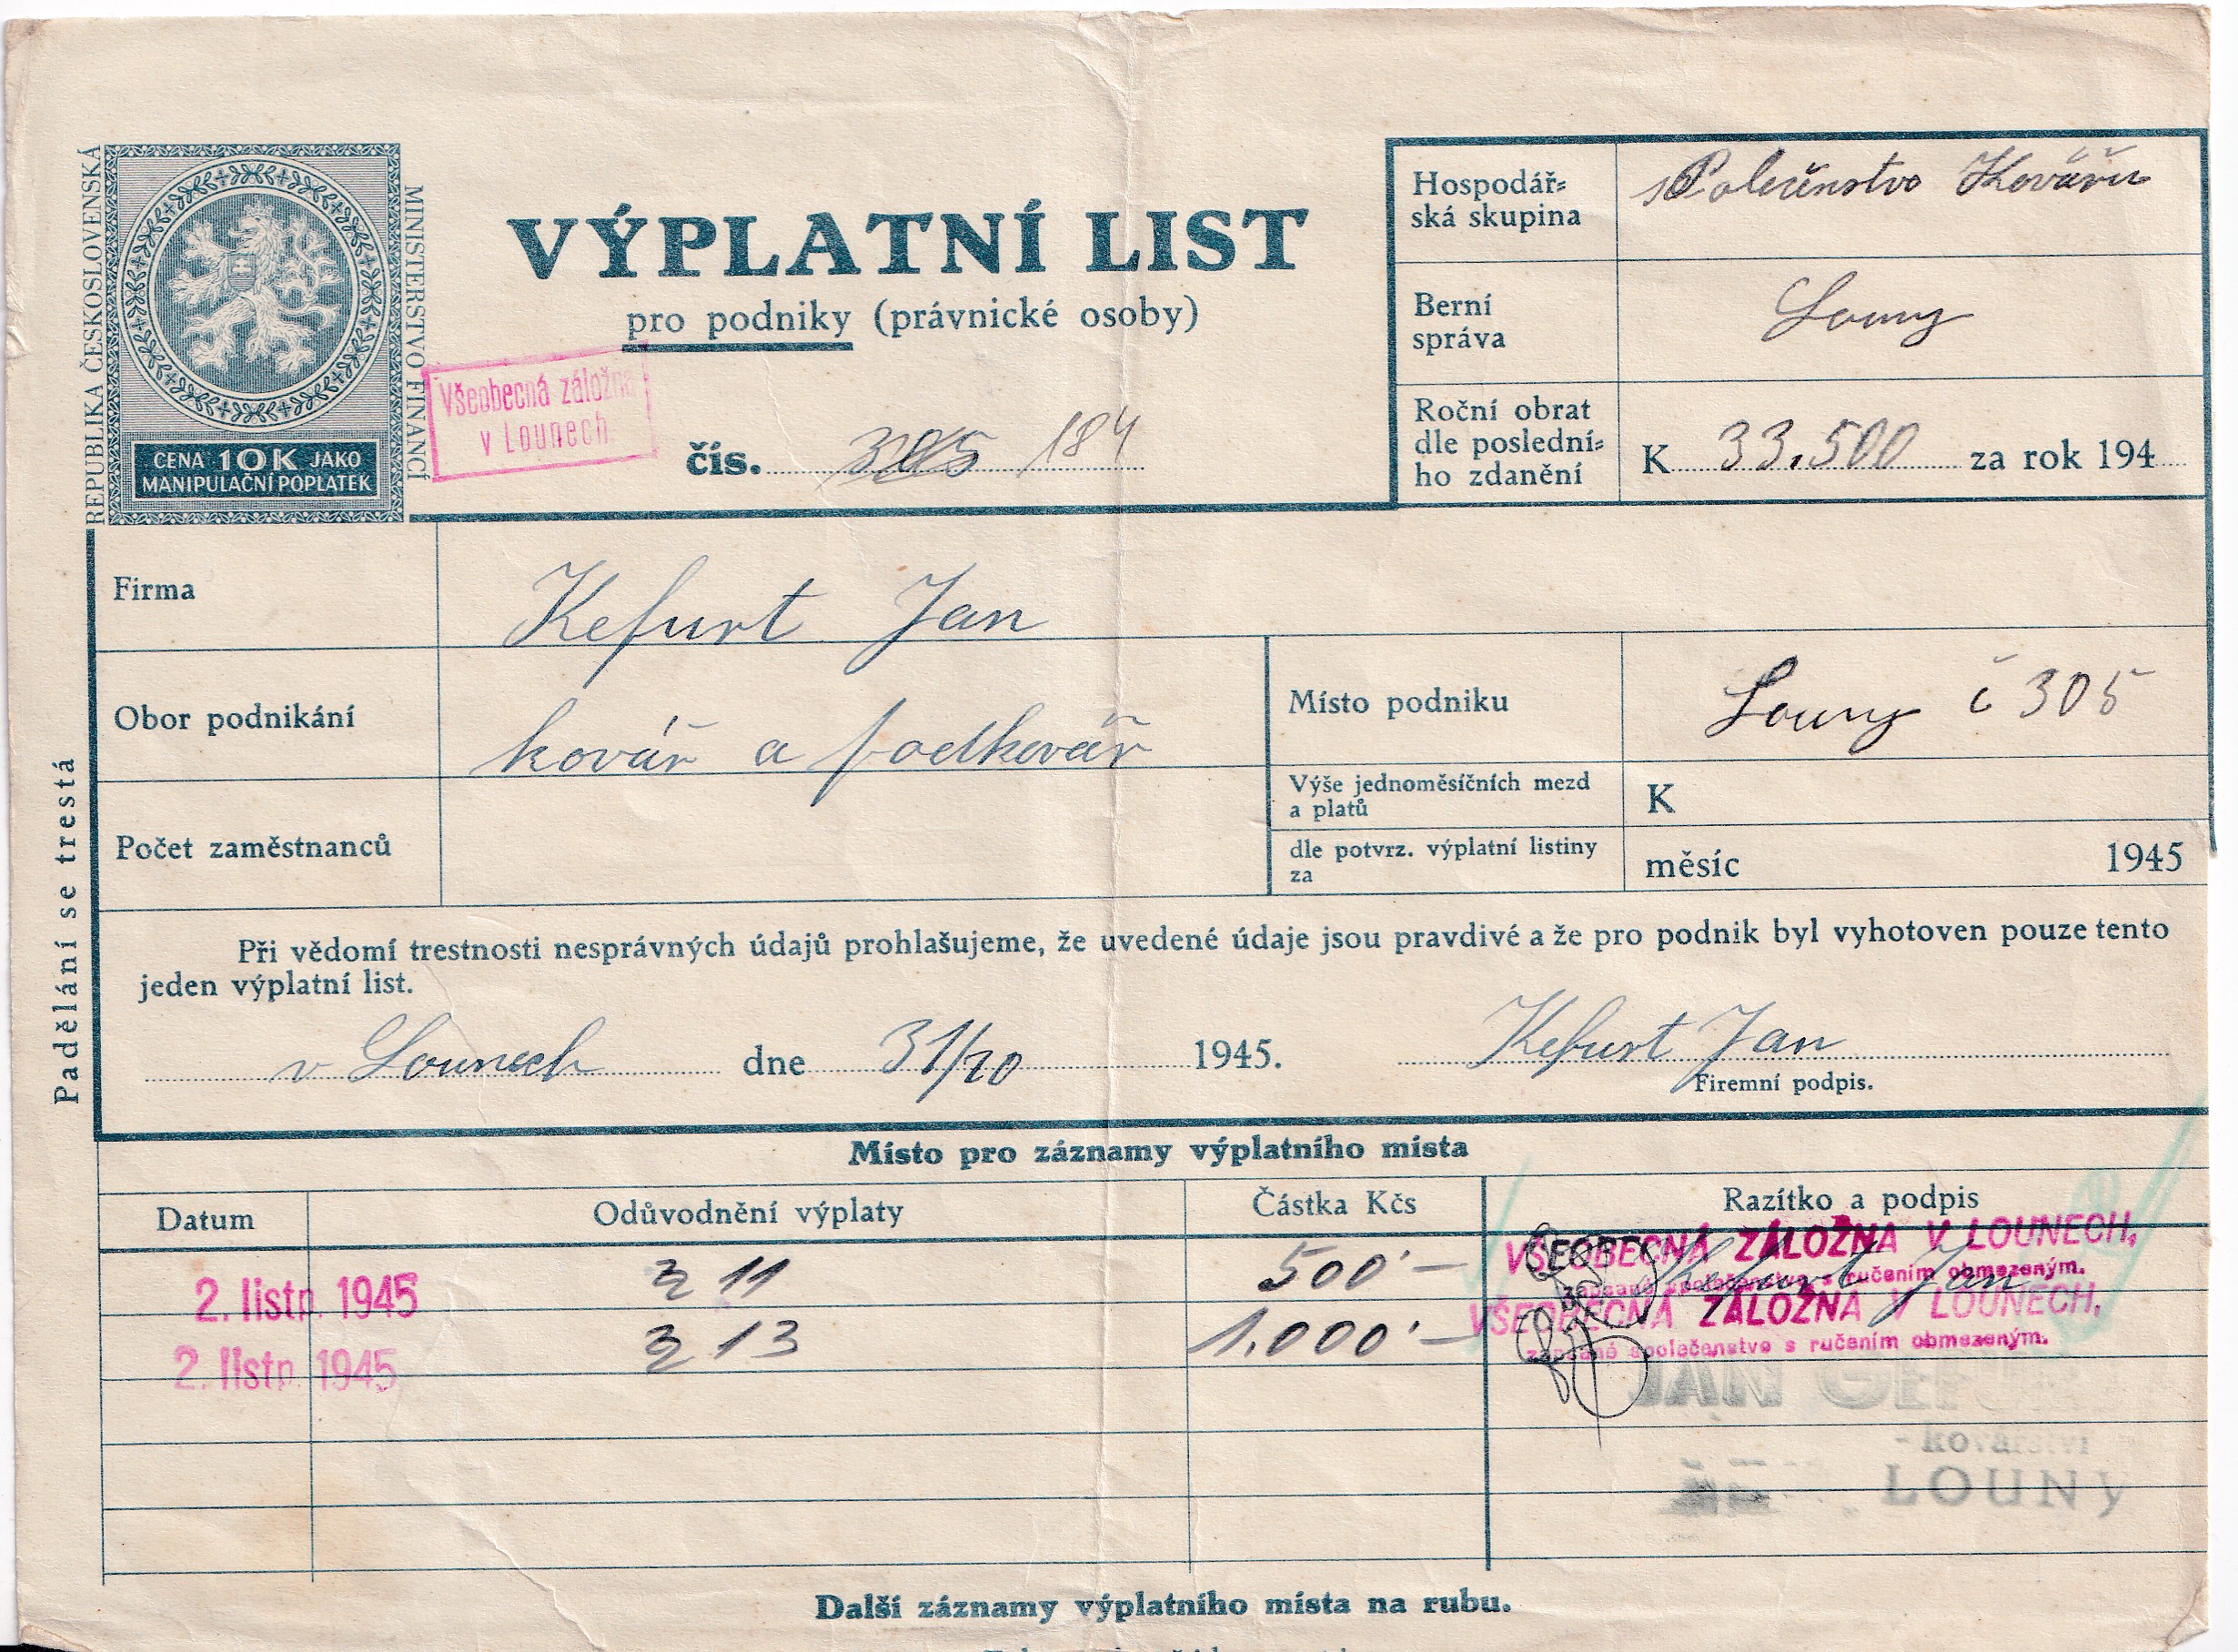 REPUBLIKA ČESKOSLOVENSKÁ
MINISTERSTVO FINANCÍ
CENA 10K JAKO
MANIPULAČNÍ POPLATEK
VÝPLATNÍ LIST
pro podniky (právnické osoby)
Všeobecná záložna
v Lounech
čís. 305 184
Hospodář=
ská skupina
Kovářů
Berní
správa
Louny
Roční obrat
dle poslední=
ho zdanění
K 33.500 za rok 194
Firma
Kefurt Jan
Obor podnikání
kovář a podkovář
Místo podniku
Louny č 305
Počet zaměstnanců
Výše jednoměsíčních mezd
a platů
K
dle potvrz. výplatní listiny
za
měsíc 1945
Padělání se trestá
Při vědomí trestnosti nesprávných údajů prohlašujeme, že uvedené údaje jsou pravdivé a že pro podnik byl vyhotoven pouze tento
jeden výplatní list.
v Lounech dne 31/10 1945.
Kefurt Jan
Firemní podpis.
Místo pro záznamy výplatního místa
Datum Odůvodnění výplaty Částka Kčs Razítko a podpis
2. listp. 1945 11 500'—
VŠEOBECNÁ ZÁLOŽNA V LOUNECH,
zapsané společenstvo s ručením obmezeným.
Kefurt Jan
2. listp. 1945 13 1.000'—
VŠEOBECNÁ ZÁLOŽNA V LOUNECH,
zapsané společenstvo s ručením obmezeným.
JAN
- kovářství
LOUNY
Další záznamy výplatního místa na rubu.